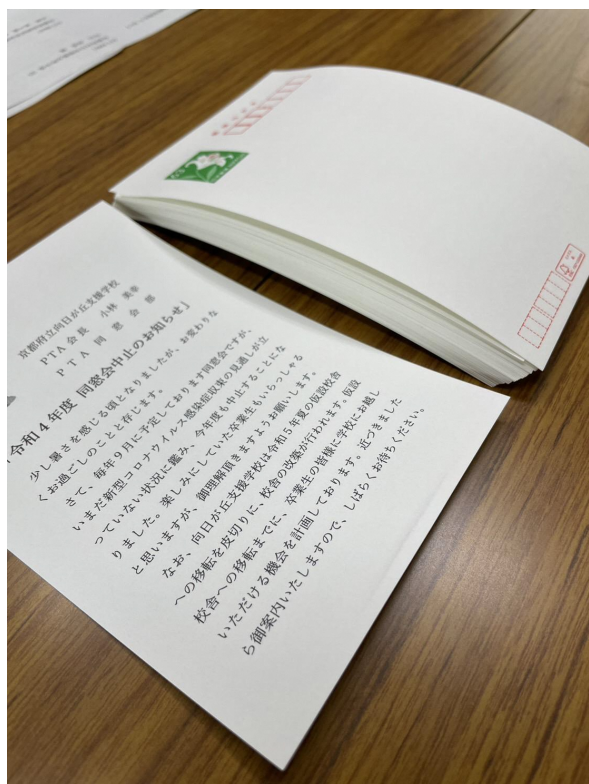 京都府立向日が丘支援学校
PTA会長 小林 美幸
PTA 同窓会部
令和4年度 同窓会中止のお知らせ」
少し暑さを感じる頃となりましたが、お変わりな
くお過ごしのことと存じます。
さて、毎年9月に予定しております同窓会ですが、
いまだ新型コロナウイルス感染症収束の見通しが立
っていない状況に鑑み、今年度も中止することにな
りました。楽しみにしていた卒業生もいらっしゃる
と思いますが、御理解頂きますようお願いします。
なお、向日が丘支援学校は令和5年夏の仮設校舎
への移転を皮切りに、校舎の改築が行われます。仮設
校舎への移転までに、卒業生の皆様に学校にお越し
いただける機会を計画しております。近づきました
ら御案内いたしますので、しばらくお待ちください。